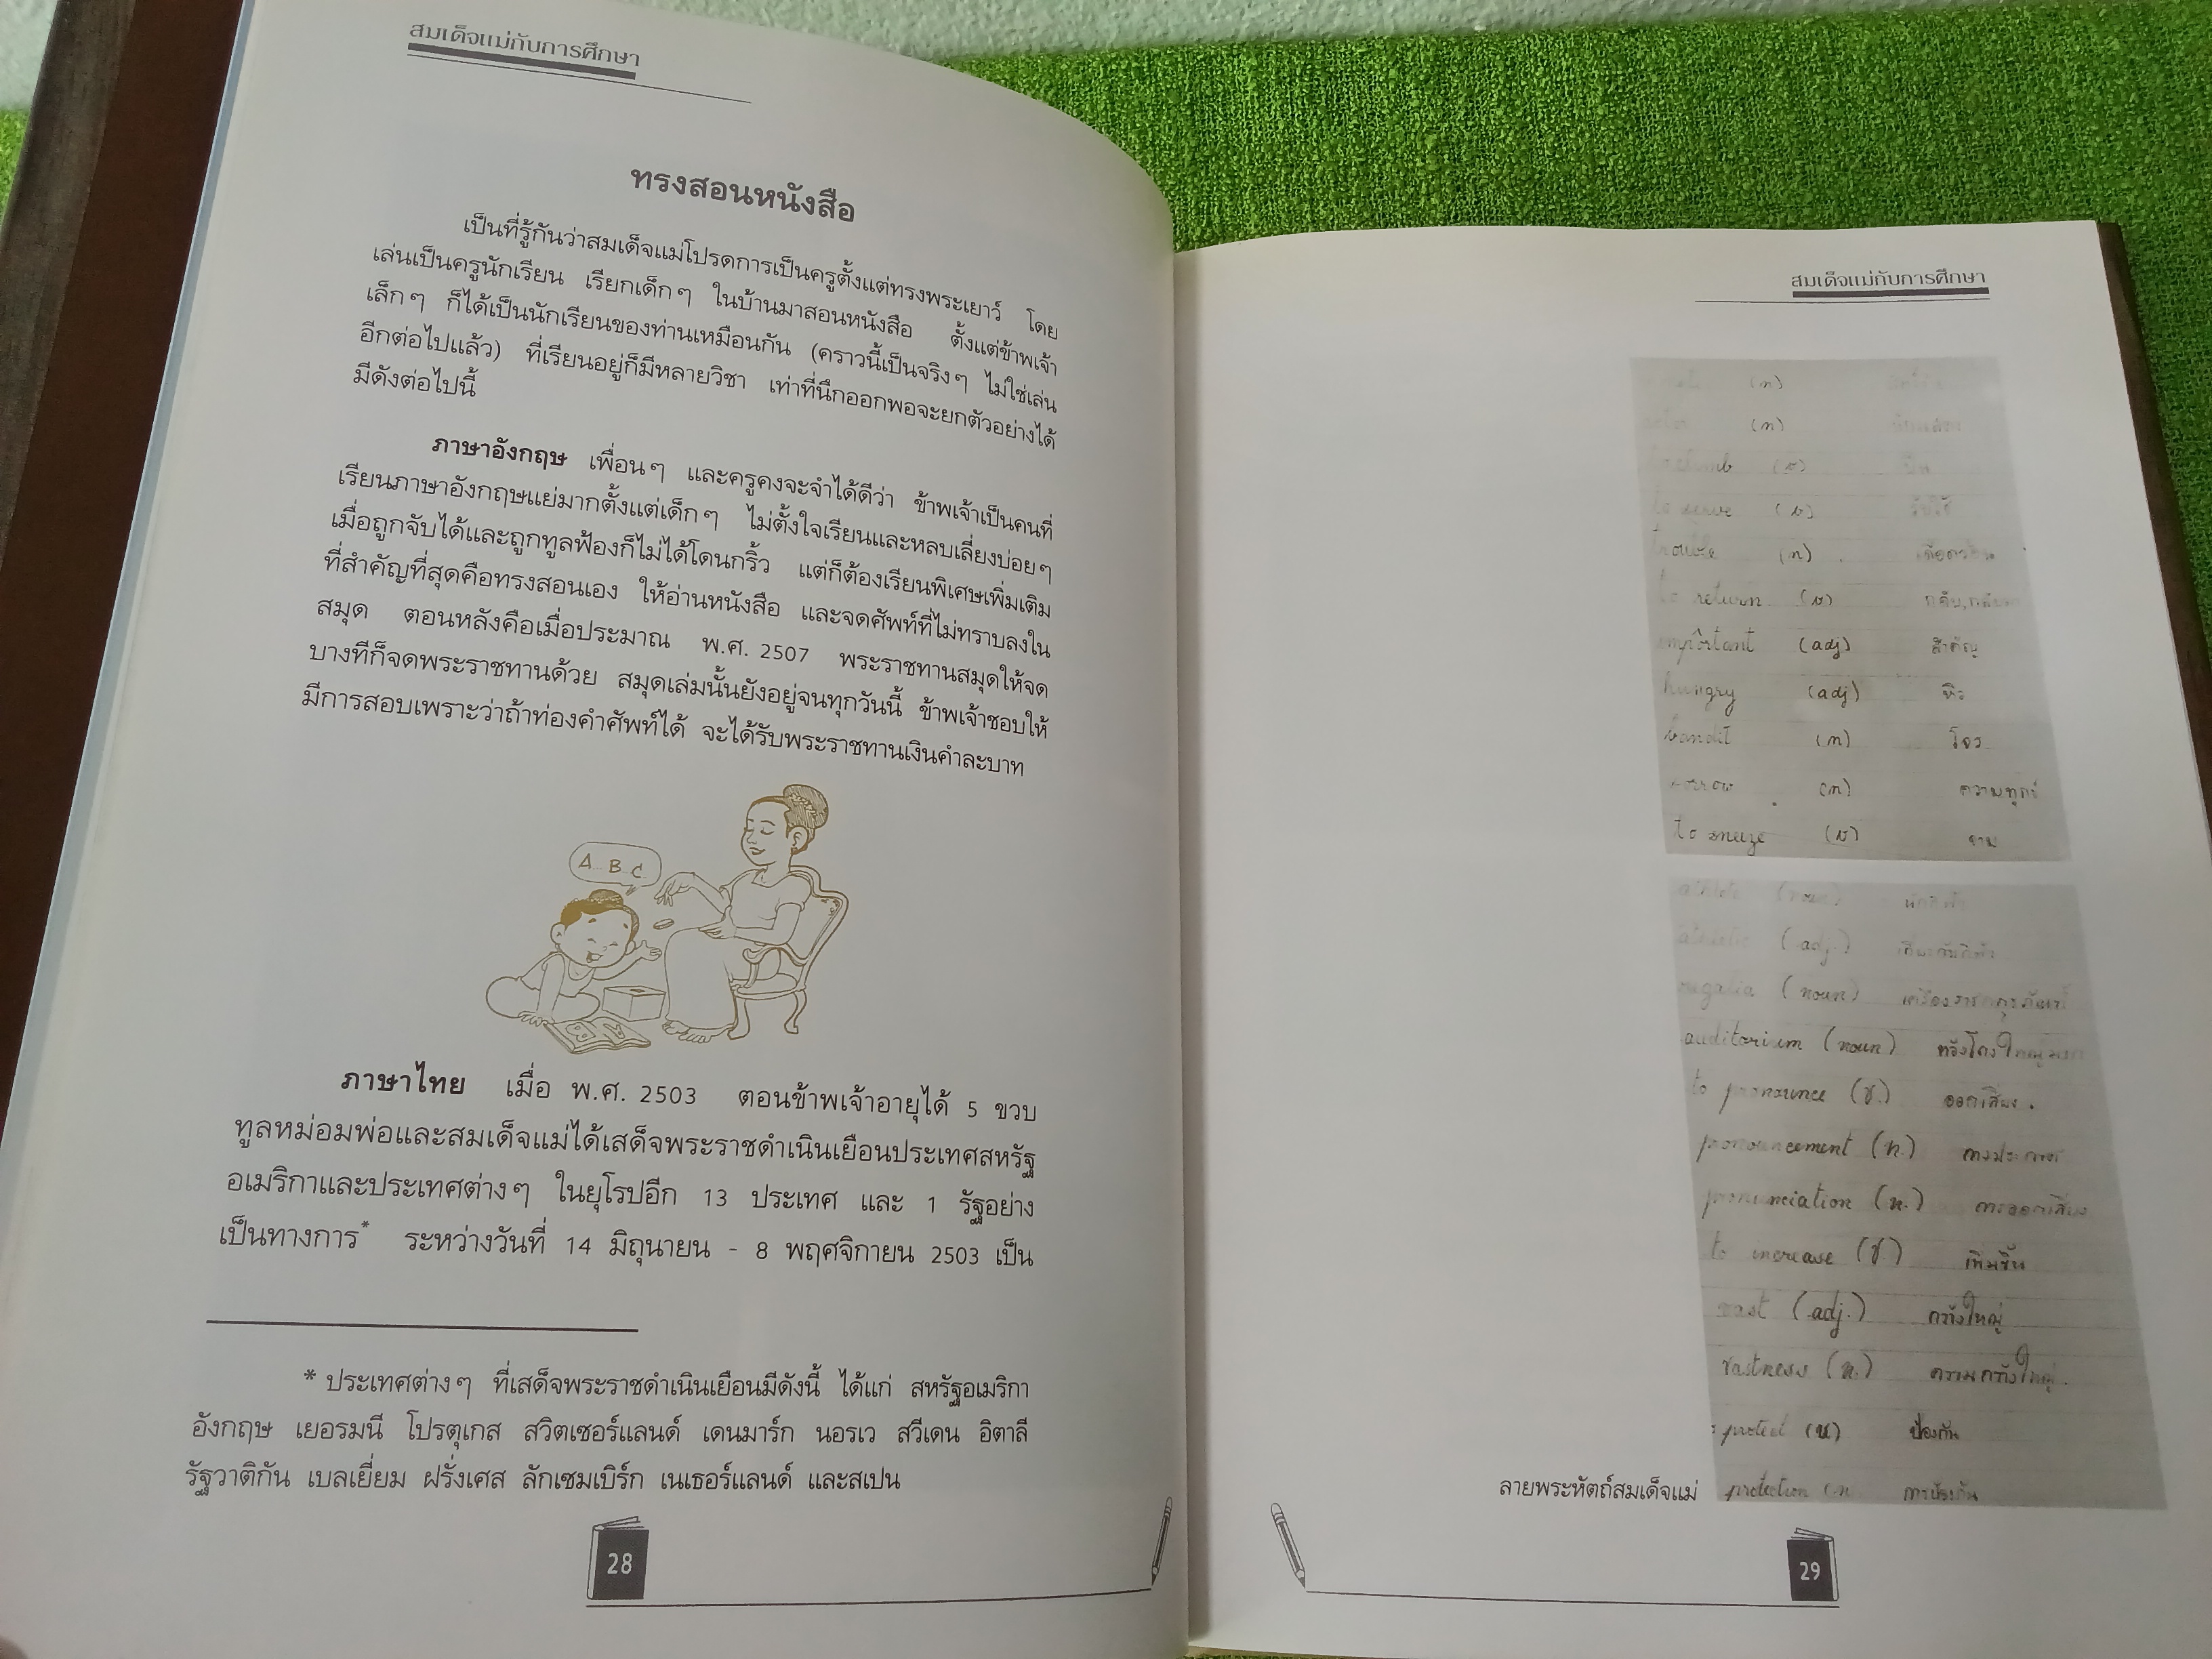 สมเด็จแม่กับการศึกษา
ทรงสอนหนังสือ
เป็นที่รู้กันว่าสมเด็จแม่โปรดการเป็นครูตั้งแต่ทรงพระเยาว์ โดย
เล่นเป็นครูนักเรียน เรียกเด็กๆ ในบ้านมาสอนหนังสือ ตั้งแต่ข้าพเจ้า
เล็กๆ ก็ได้เป็นนักเรียนของท่านเหมือนกัน (คราวนี้เป็นจริงๆ ไม่ใช่เล่น
อีกต่อไปแล้ว) ที่เรียนอยู่ก็มีหลายวิชา เท่าที่นึกออกพอจะยกตัวอย่างได้
มีดังต่อไปนี้
ภาษาอังกฤษ เพื่อนๆ และครูคงจะจำได้ดีว่า ข้าพเจ้าเป็นคนที่
เรียนภาษาอังกฤษแย่มากตั้งแต่เด็กๆ ไม่ตั้งใจเรียนและหลบเลี่ยงบ่อยๆ
เมื่อถูกจับได้และถูกทูลฟ้องก็ไม่ได้โดนกริ้ว แต่ก็ต้องเรียนพิเศษเพิ่มเติม
ที่สำคัญที่สุดคือทรงสอนเอง ให้อ่านหนังสือ และจดศัพท์ที่ไม่ทราบลงใน
สมุด ตอนหลังคือเมื่อประมาณ พ.ศ. 2507 พระราชทานสมุดให้จด
บางทีก็จดพระราชทานด้วย สมุดเล่มนั้นยังอยู่จนทุกวันนี้ ข้าพเจ้าชอบให้
มีการสอบเพราะว่าถ้าท่องคำศัพท์ได้ จะได้รับพระราชทานเงินคำละบาท
A B C
ภาษาไทย เมื่อ พ.ศ. 2503 ตอนข้าพเจ้าอายุได้ 5 ขวบ
ทูลหม่อมพ่อและสมเด็จแม่ได้เสด็จพระราชดำเนินเยือนประเทศสหรัฐ
อเมริกาและประเทศต่างๆ ในยุโรปอีก 13 ประเทศ และ 1 รัฐอย่าง
เป็นทางการ* ระหว่างวันที่ 14 มิถุนายน - 8 พฤศจิกายน 2503 เป็น
* ประเทศต่างๆ ที่เสด็จพระราชดำเนินเยือนมีดังนี้ ได้แก่ สหรัฐอเมริกา
อังกฤษ เยอรมนี โปรตุเกส สวิตเซอร์แลนด์ เดนมาร์ก นอรเว สวีเดน อิตาลี
รัฐวาติกัน เบลเยี่ยม ฝรั่งเศส ลักเซมเบิร์ก เนเธอร์แลนด์ และสเปน
28
สมเด็จแม่กับการศึกษา
(n)
(n)
(v)
to serve (v) รับใช้
trouble (n)
to return (v)
important (adj) สำคัญ
hungry (adj) หิว
bandit (n) โจร
sorrow (n) ความทุกข์
to sneeze (v) จาม
(noun)
athletic (adj.)
regalia (noun)
auditorium (noun)
to pronounce (v.) ออกเสียง.
pronouncement (n.)
pronunciation (n.) การออกเสียง
to increase (v.) เพิ่มขึ้น
vast (adj.) กว้างใหญ่
vastness (n.) ความกว้างใหญ่.
protect (v) ป้องกัน
protection (n การป้องกัน
ลายพระหัตถ์สมเด็จแม่
29